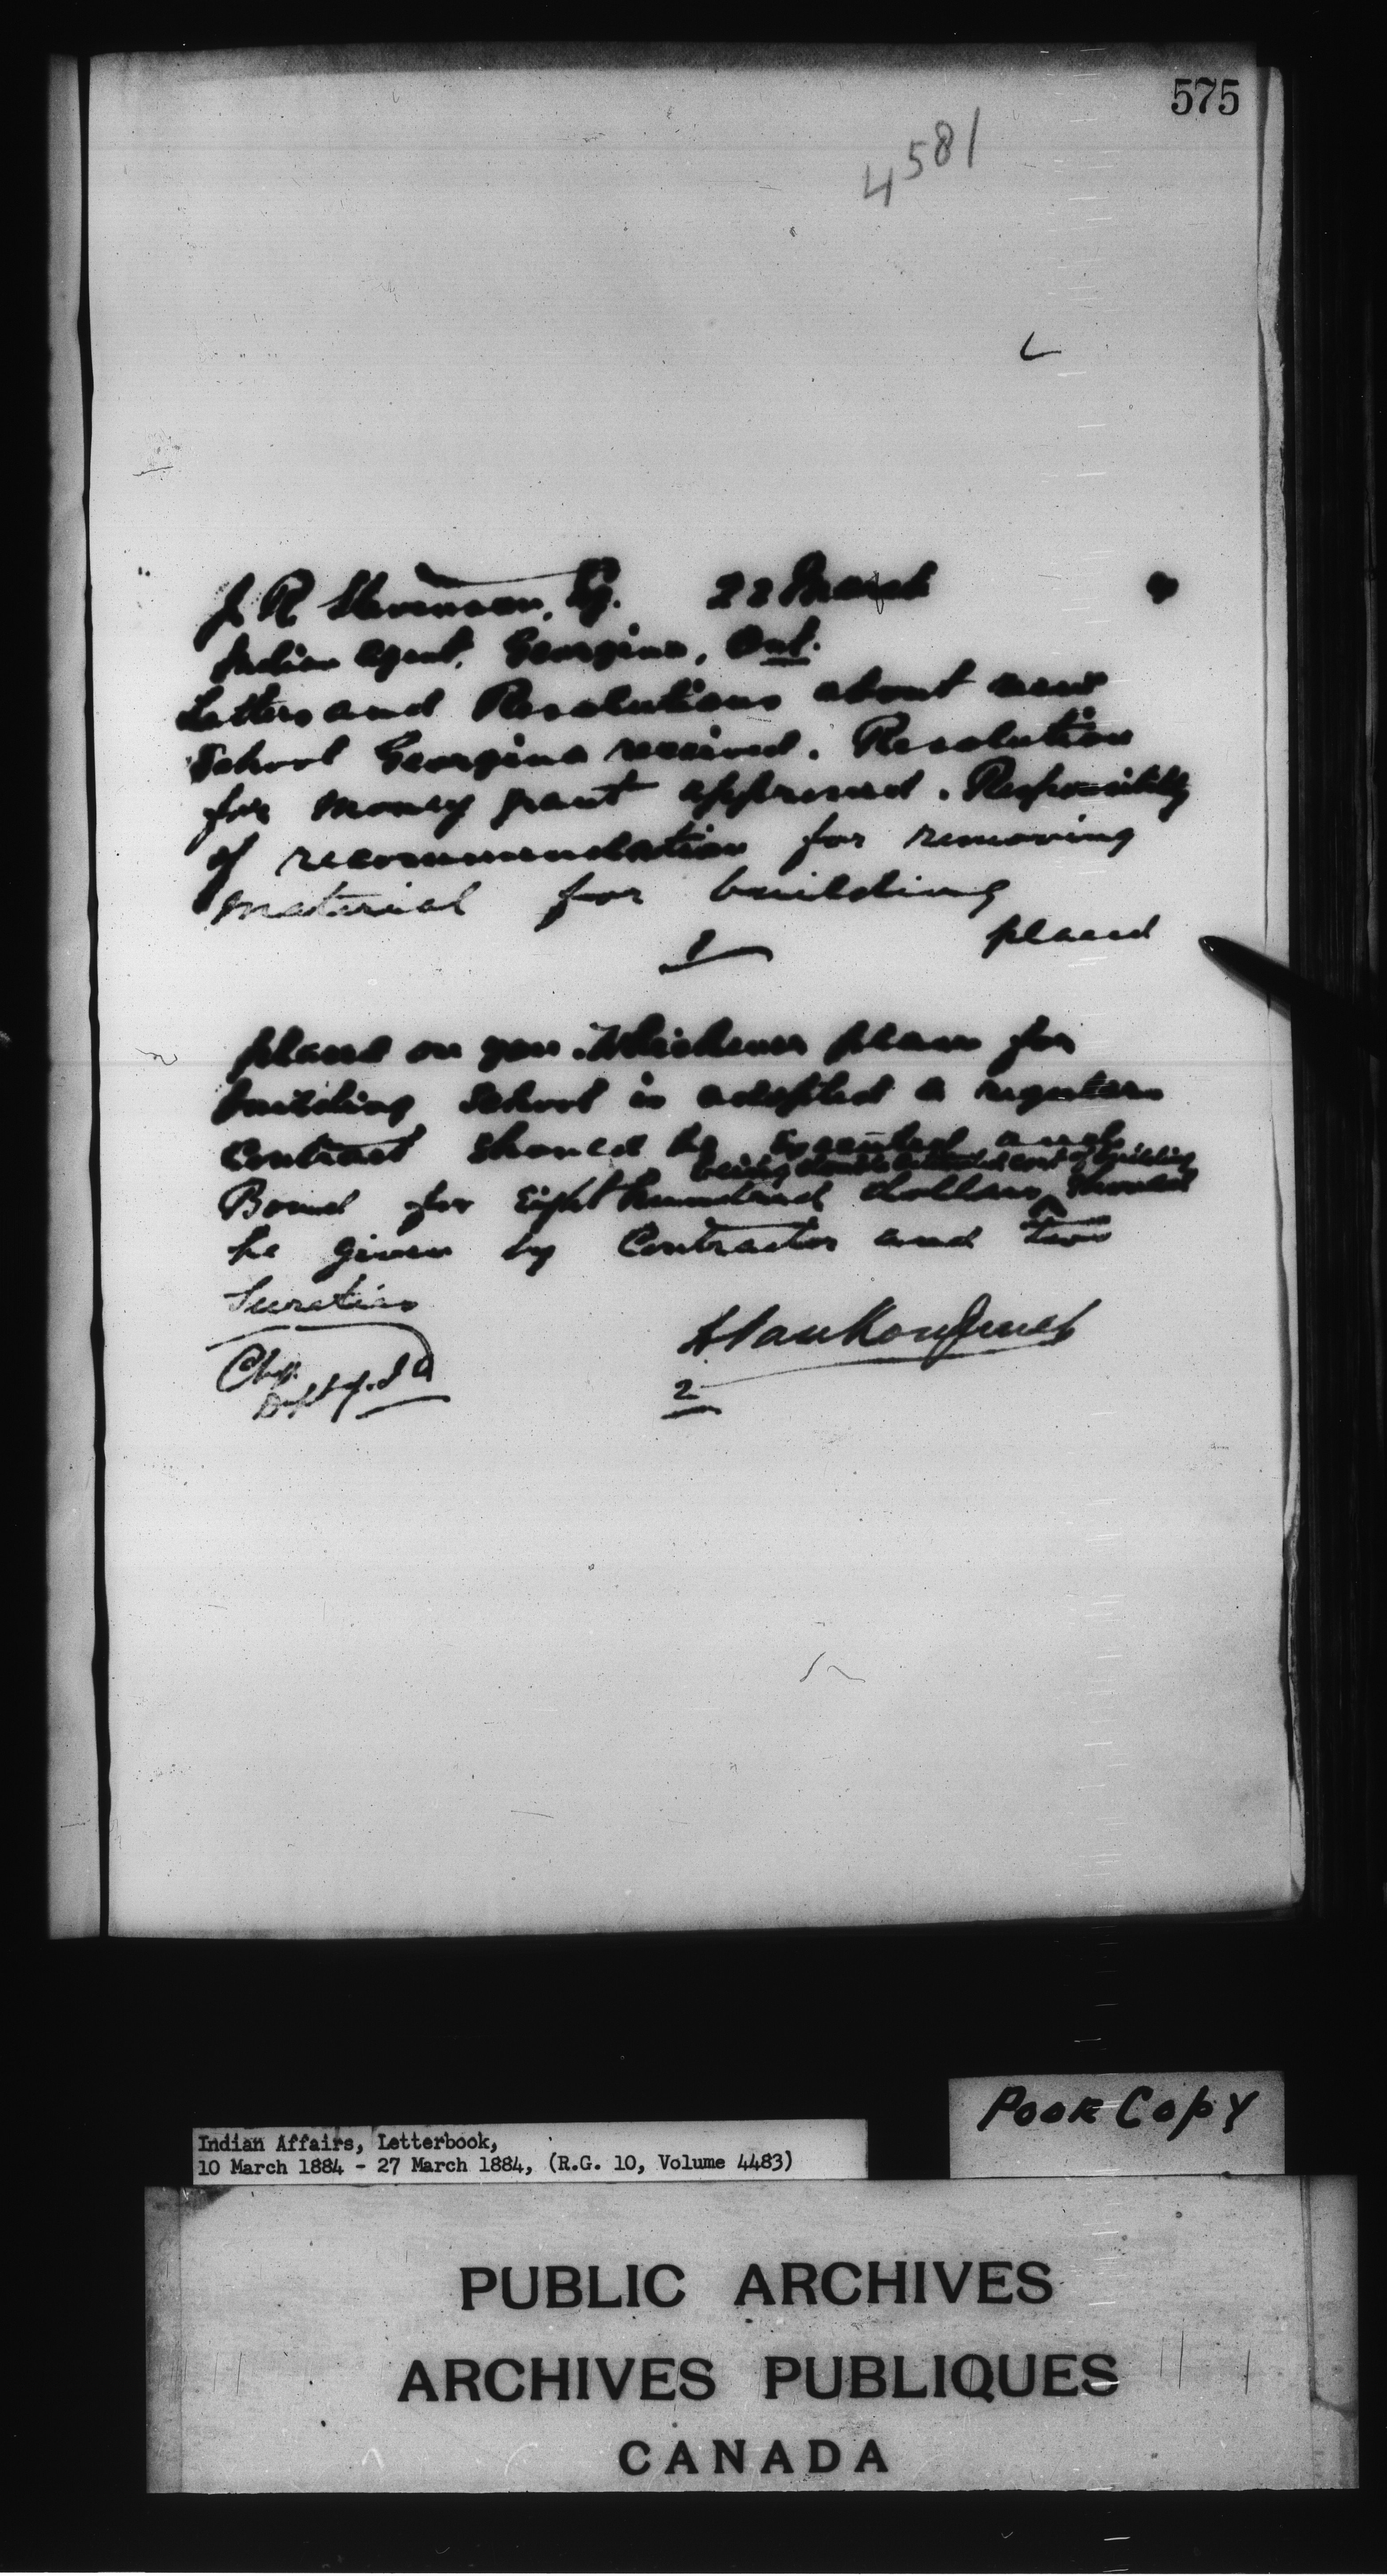 575
4581
J. R. Stevenson, Esq. 22 March
Indian Agent, Georgina, Ont.
Letters and Resolutions about new
School Georgina received. Resolution
for money grant approved. Responsibility
of recommendation for removing
material for building
placed
1
placed on you. Whichever plan for
building School is adopted a regular
Contract should be executed and
being double estimated cost of building
Bond for Eight hundred dollars ^ should
be given by Contractor and two
Sureties
L. VanKoughnet
Chg.
Dept of I A
2
Indian Affairs, Letterbook,
10 March 1884 - 27 March 1884, (R.G. 10, Volume 4483)
POOR COPY
PUBLIC ARCHIVES
ARCHIVES PUBLIQUES
CANADA